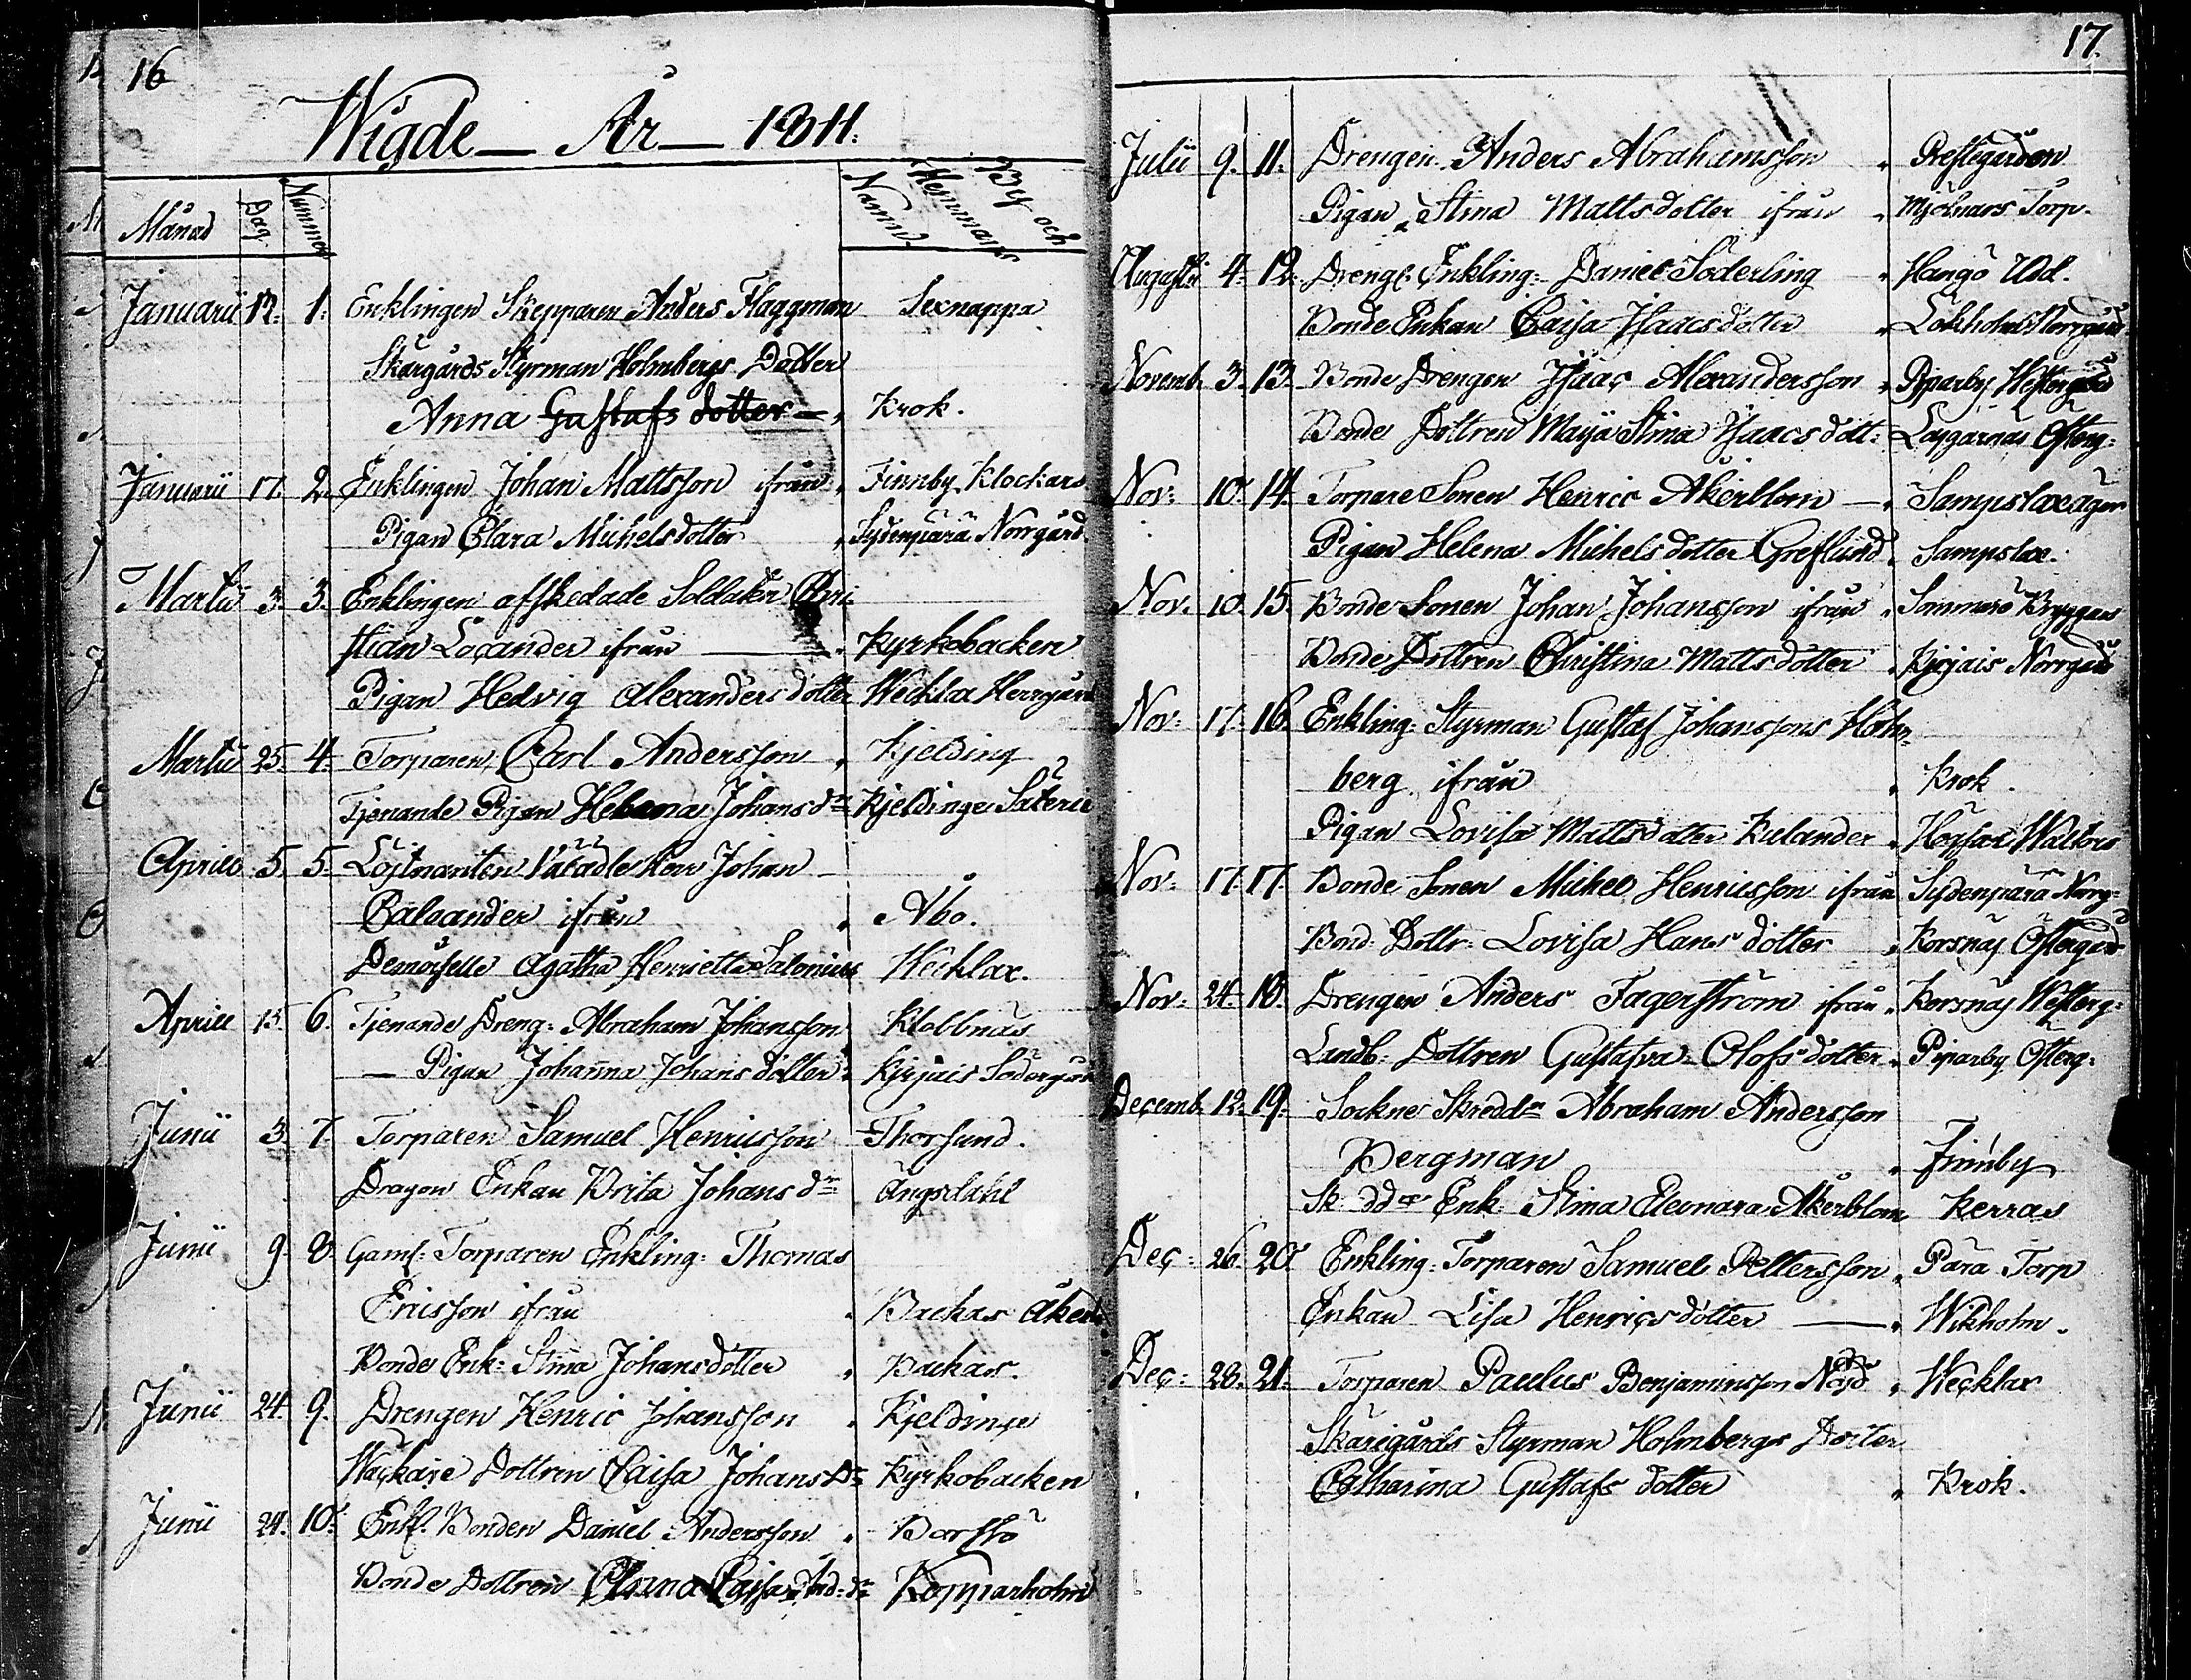 16
Wigde — År — 1811.
Månad Dag Nummer By och Hemmans Namn
Januarii 12. 1. Enklingen Skepparen Anders Flaggman Sexnappa
Skärgårds Styrman Holmbergs Dotter
Anna Gustafs dotter — Krok.
Januarii 17. 2. Enklingen Johan Mattsson ifrån Finnby Klockars
Pigan Clara Michelsdotter Sydenpära Norrgård
Martii 3. 3. Enklingen afskedade Soldaten Chri-
stian Locander ifrån — Kyrkobacken
Pigan Hedvig Alexanders dotter Wecklax Herrgård
Martii 25. 4. Torparen Carl Andersson Kjelding
Tjenande Pigan Helena Johans dr Kjeldinge Säterie
Aprill 5. 5. Löjtnanten Välädle Herr Johan
Caloander ifrån Åbo.
Demoiselle Agatha Henrietta Salonius Wecklax.
Aprill 15. 6. Tjenande Dreng: Abraham Johansson Klobbnäs
— Pigan Johanna Johans dotter Kirjais Södergård
Junii 3. 7. Torparen Samuel Henricsson Thorsund.
Dragon Enkan Brita Johans dr Ängsdahl
Junii 9. 8. Gaml: Torparen Enkling: Thomas
Ericsson ifrån Backas Åker
Bonde Enk: Stina Johansdotter Backas.
Junii 24. 9. Drengen Henric Johansson Kjeldinge
Dottren Caisa Johans Dr Kyrkobacken
Junii 24. 10. Enkl. Bonden Daniel Andersson Borstö
Bonde Dottren Anna Caisa And: dr Kopparholm
17.
Julii 9. 11. Drengen Anders Abrahamsson Prestegården
Pigan Stina Mattsdotter ifrån Mjölnars Torp.
Augusti 4. 12. Dreng: Enkling: Daniel Söderling Hangö Udd.
Bonde Enkan Caisa Isaacsdotter Lökholm Norrgård
Novemb. 3. 13. Bonde Drengen Isaac Alexandersson Piparby Westergård
Bonde Dottren Maija Stina Isaacs dott: Österg:
Nov: 10. 14. Torpare Sonen Henric Åkerblom —
Pigan Helena Michels dotter Greflund Sampslax.
Nov. 10. 15. Bonde Sonen Johan Johansson ifrån Sommarö Bryggars
Bonde Dottren Christina Matts dotter Kirjais Norrgård
Nov: 17. 16. Enkling: Styrman Gustaf Johanssons Holm-
berg ifrån Krok.
Pigan Lovisa Matts dotter Kulander Högsar
Nov: 17. 17. Bonde Sonen Michel Henricsson ifrån Sydenpära Norrg:
Bond: Dottr: Lovisa Hans dotter Korsnäs Östergård
Nov: 24. 18. Drengen Anders Fagerström ifrån Korsnäs Westerg:
Landb: Dottren Gustafva Olofs dotter Piparby Österg:
Decemb. 12. 19. Sockne Skreddn Abraham Andersson
Bergman Finnby
Enk: Stina Eleonara Åkerblom Kerras
Dec: 26. 20. Enkling: Torparen Samuel Pettersson Pära Torp
Enkan Lisa Henrics dotter — Wikholm.
Dec: 28. 21. Torparen Paulus Benjaminsson Nöjd Wecklax
Skärigårds Styrman Holmbergs Dotter
Catharina Gustafs dotter Krok.